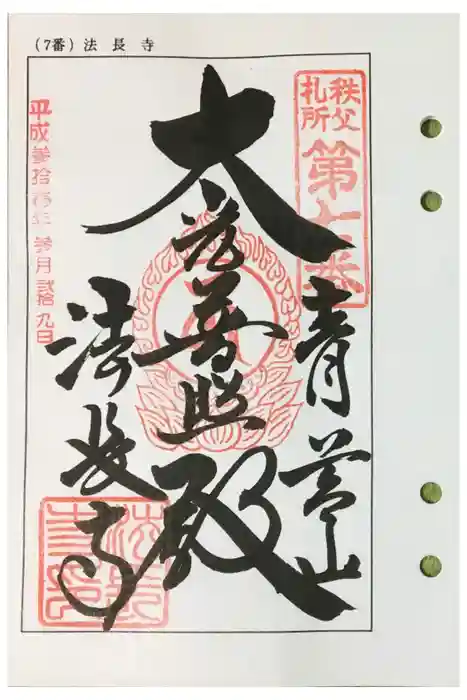 (7番) 法長寺
秩父
札所
第七番
青苔山
大光普照殿
法長寺
平成参拾壱年 参月 弐拾九日